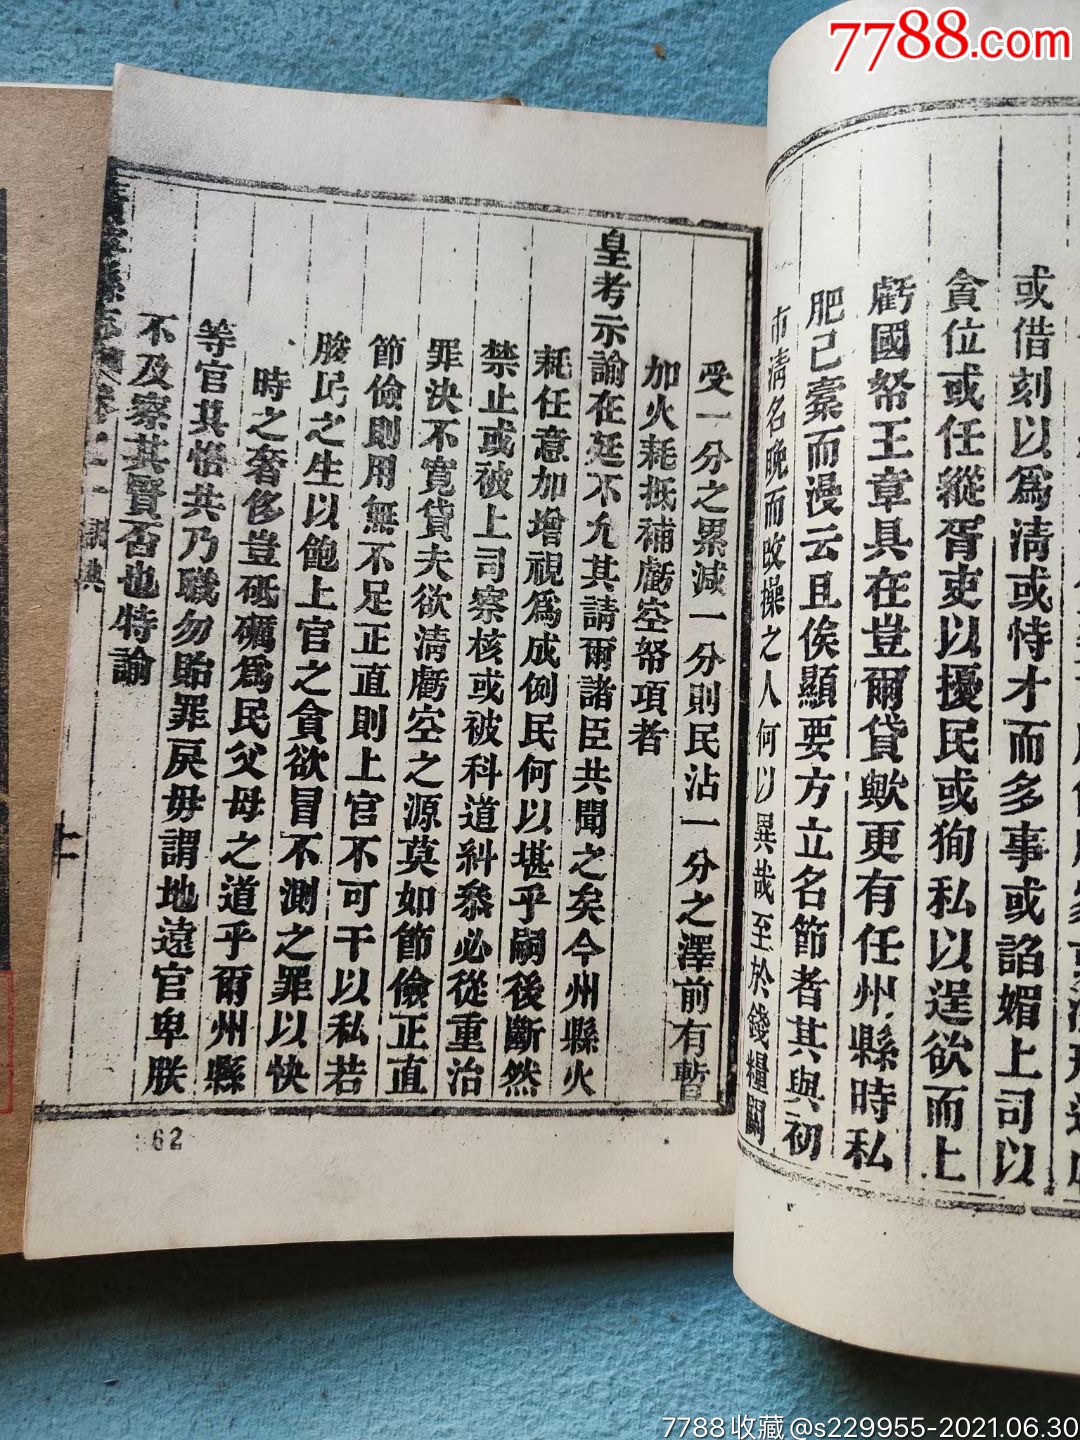 7788.com
或借刻以爲清或恃才而多事或諂媚上司以
貪位或任縱胥吏以擾民或狥私以逞欲而上
虧國帑王章具在豈爾貸歟更有任州縣時私
肥己橐而漫云且俟顯要方立名節者其與初
市清名晚而改操之人何以異哉至於錢糧關
受一分之累減一分則民沾一分之澤前有暫
加火耗抵補虧空帑項者
皇考示諭在廷不允其請爾諸臣共聞之矣今州縣火
耗任意加增視爲成例民何以堪乎嗣後斷然
禁止或被上司察核或被科道糾叅必從重治
罪決不寬貸夫欲清虧空之源莫如節儉正直
節儉則用無不足正直則上官不可干以私若
朘民之生以飽上官之貪欲冒不測之罪以快
時之奢侈豈砥礪爲民父母之道乎爾州縣
等官其恪共乃職勿貽罪戾毋謂地遠官卑朕
不及察其賢否也特諭
縣志
卷之一
謨典
十一
62
7788收藏@s229955-2021.06.30